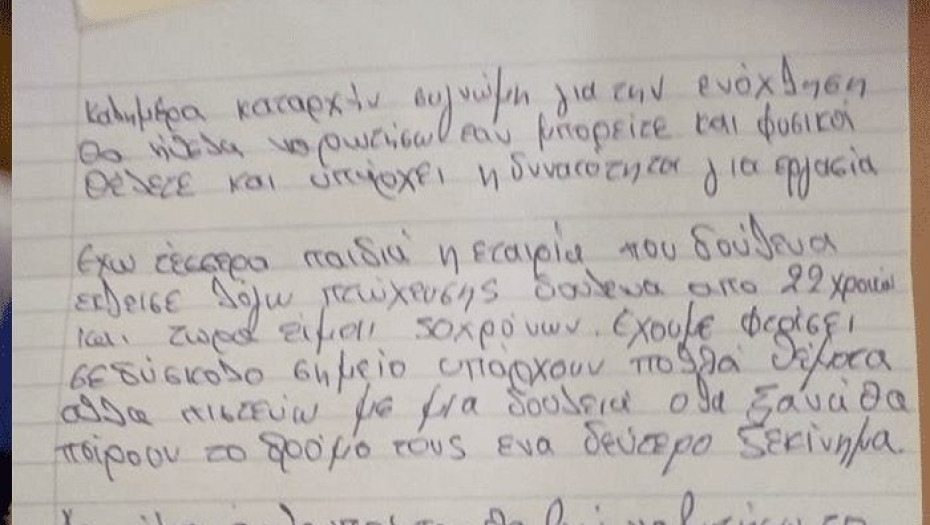 Καλημέρα καταρχήν συγνώμη για την ενόχληση
θα ήθελα να ρωτήσω εαν μπορείτε και φυσικά
θέλετε και υπάρχει η δυνατότητα για εργασία
Έχω τέσσερα παιδιά η εταιρία που δούλευα
έκλεισε λόγω πτώχευσης δούλευα απο 22 χρονών
και τωρα είμαι 50χρόνων. Έχουμε φτάσει
σε δύσκολο σημείο υπάρχουν πολλά θέματα
αλλα πιστεύω με μια δουλειά ολα ξανά θα
πάρουν το δρόμο τους ενα δεύτερο ξεκίνημα.